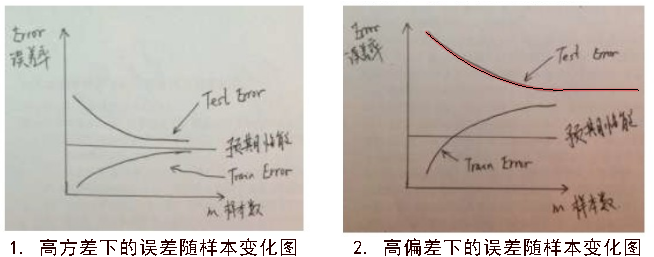 Error
误差率
Test Error
预期性能
Train Error
m 样本数
1. 高方差下的误差随样本变化图
Error
误差率
Test Error
预期性能
Train Error
m 样本数
2. 高偏差下的误差随样本变化图